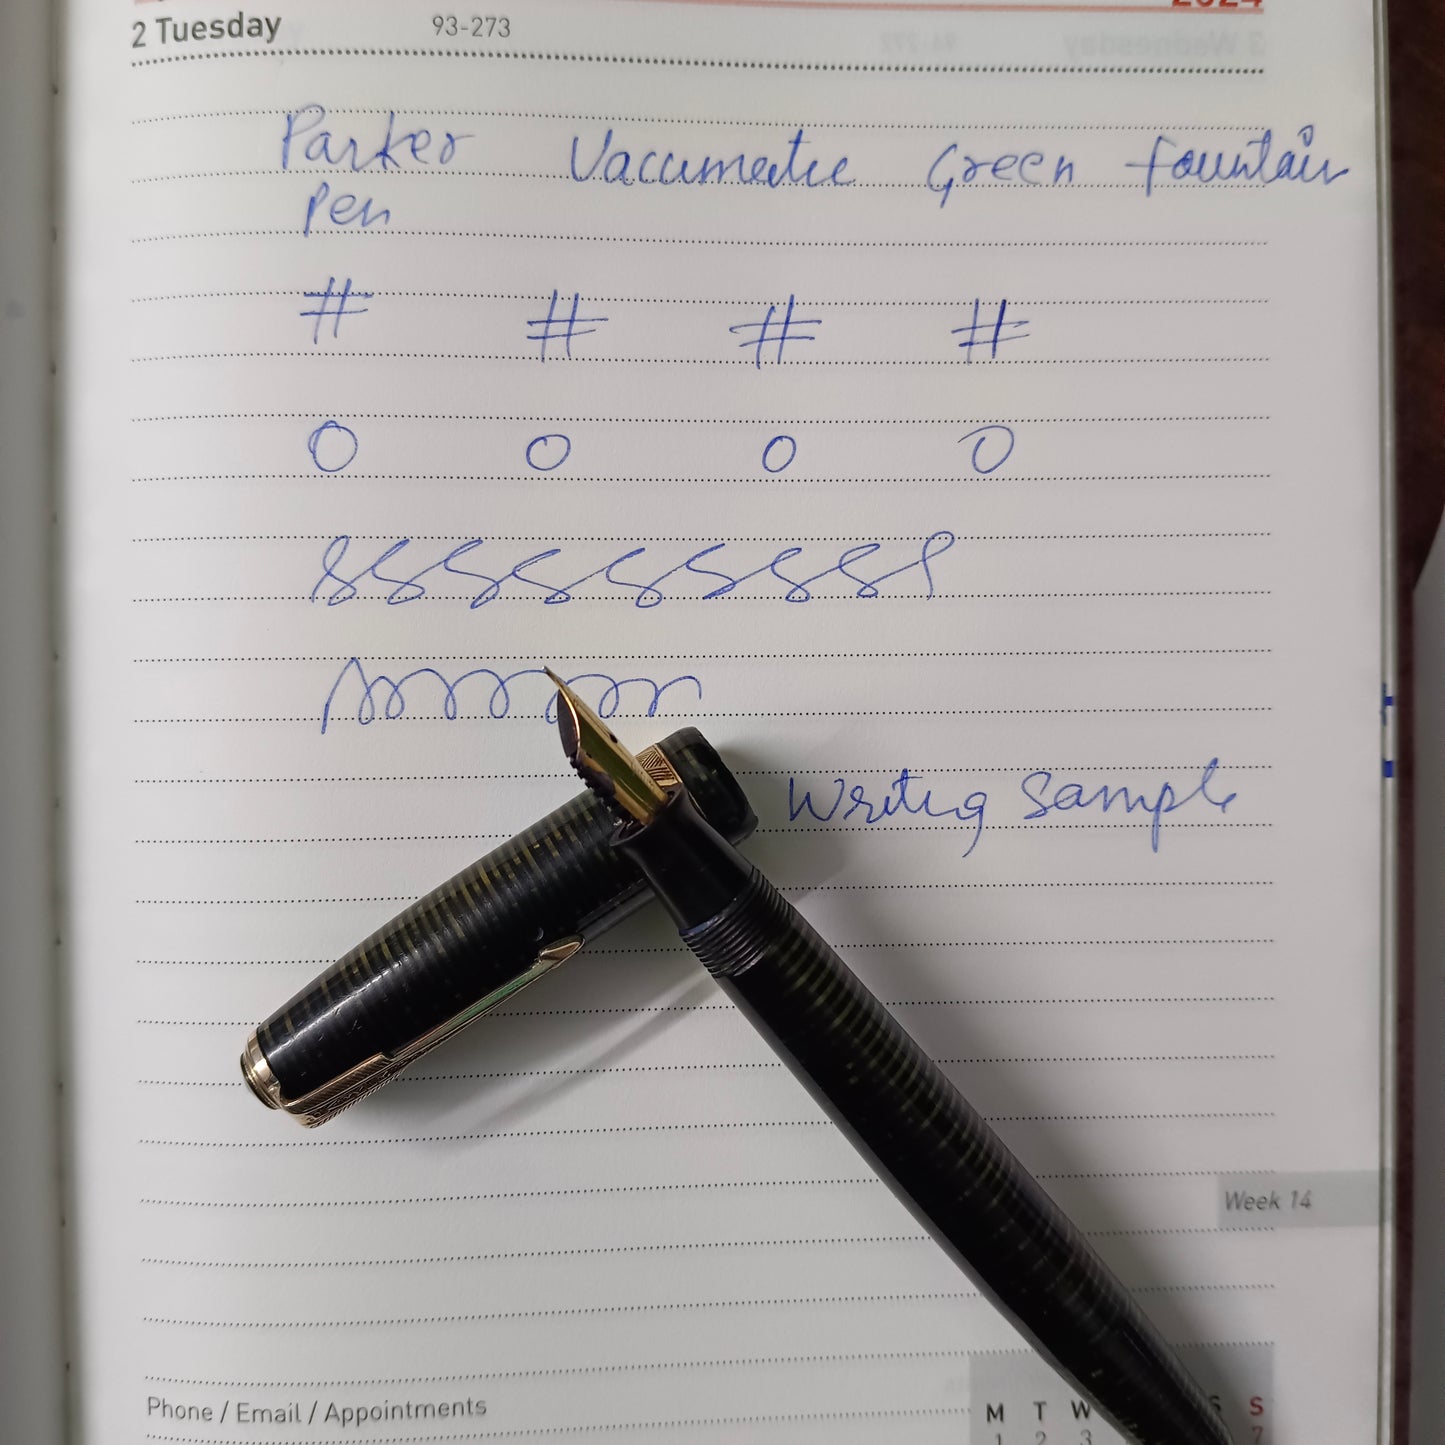 2024
2 Tuesday 93-273
Parker Vaccumatic Green fountain
Pen
# # # #
0 0 0 0
Writing Sample
Week 14
Phone / Email / Appointments
M T W S S
1 2 3 7